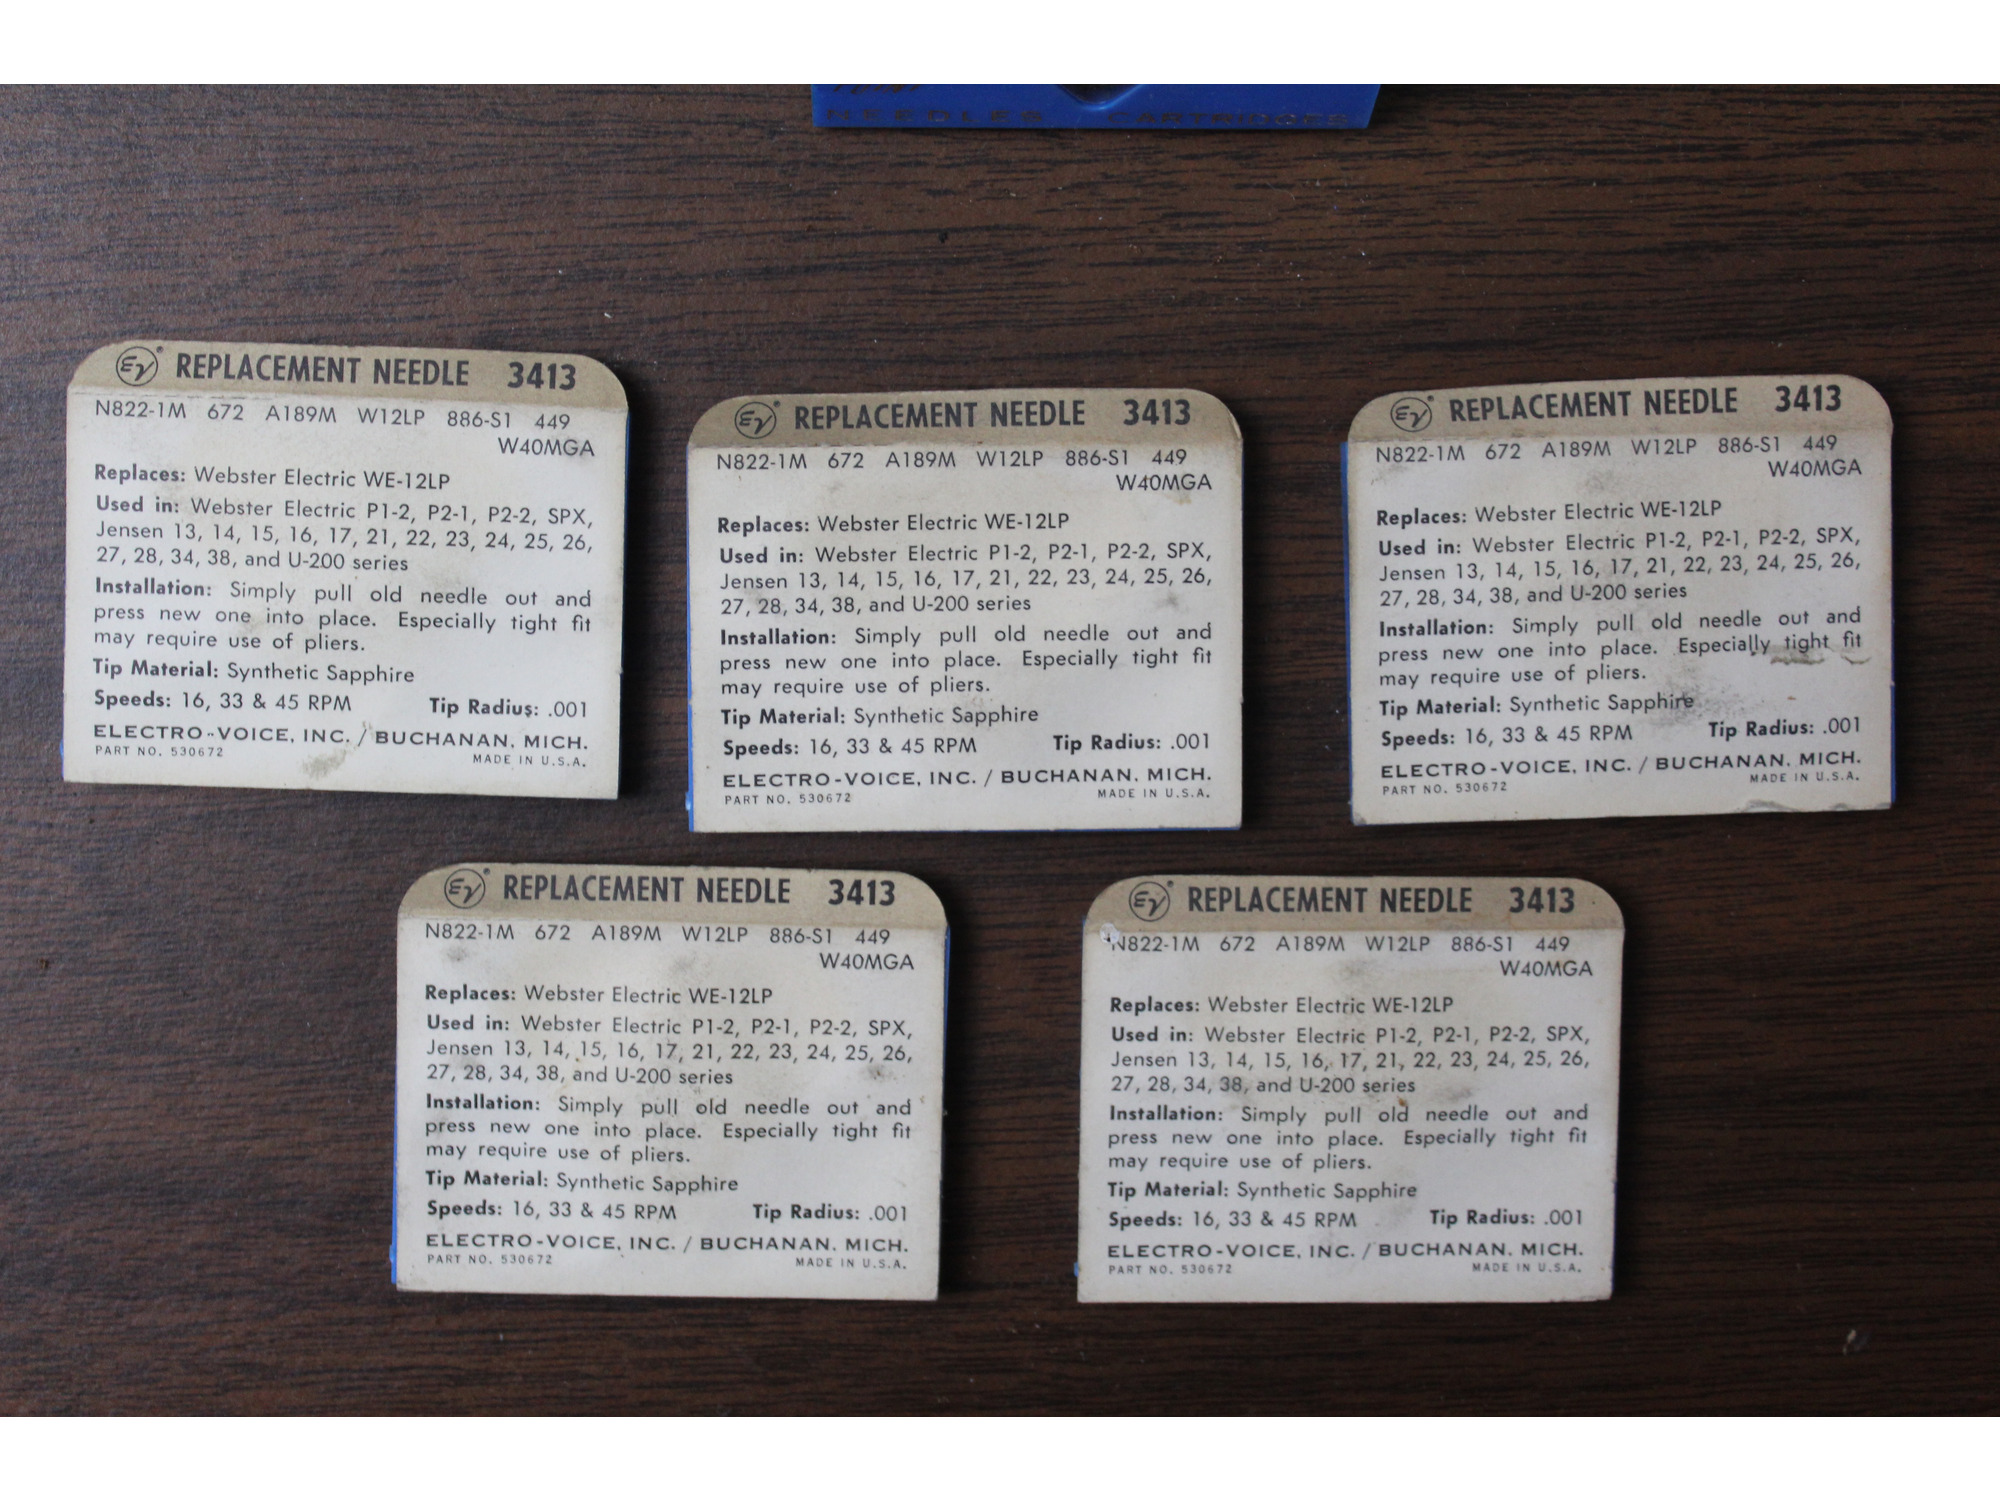 NEEDLES CARTRIDGES
EV® REPLACEMENT NEEDLE 3413
N822-1M 672 A189M W12LP 886-S1 449
W40MGA
Replaces: Webster Electric WE-12LP
Used in: Webster Electric P1-2, P2-1, P2-2, SPX,
Jensen 13, 14, 15, 16, 17, 21, 22, 23, 24, 25, 26,
27, 28, 34, 38, and U-200 series
Installation: Simply pull old needle out and
press new one into place. Especially tight fit
may require use of pliers.
Tip Material: Synthetic Sapphire
Speeds: 16, 33 & 45 RPM Tip Radius: .001
ELECTRO-VOICE, INC. / BUCHANAN, MICH.
PART NO. 530672 MADE IN U.S.A.
EV® REPLACEMENT NEEDLE 3413
N822-1M 672 A189M W12LP 886-S1 449
W40MGA
Replaces: Webster Electric WE-12LP
Used in: Webster Electric P1-2, P2-1, P2-2, SPX,
Jensen 13, 14, 15, 16, 17, 21, 22, 23, 24, 25, 26,
27, 28, 34, 38, and U-200 series
Installation: Simply pull old needle out and
press new one into place. Especially tight fit
may require use of pliers.
Tip Material: Synthetic Sapphire
Speeds: 16, 33 & 45 RPM Tip Radius: .001
ELECTRO-VOICE, INC. / BUCHANAN, MICH.
PART NO. 530672 MADE IN U.S.A.
EV® REPLACEMENT NEEDLE 3413
N822-1M 672 A189M W12LP 886-S1 449
W40MGA
Replaces: Webster Electric WE-12LP
Used in: Webster Electric P1-2, P2-1, P2-2, SPX,
Jensen 13, 14, 15, 16, 17, 21, 22, 23, 24, 25, 26,
27, 28, 34, 38, and U-200 series
Installation: Simply pull old needle out and
press new one into place. Especially tight fit
may require use of pliers.
Tip Material: Synthetic Sapphire
Speeds: 16, 33 & 45 RPM Tip Radius: .001
ELECTRO-VOICE, INC. / BUCHANAN, MICH.
PART NO. 530672 MADE IN U.S.A.
EV® REPLACEMENT NEEDLE 3413
N822-1M 672 A189M W12LP 886-S1 449
W40MGA
Replaces: Webster Electric WE-12LP
Used in: Webster Electric P1-2, P2-1, P2-2, SPX,
Jensen 13, 14, 15, 16, 17, 21, 22, 23, 24, 25, 26,
27, 28, 34, 38, and U-200 series
Installation: Simply pull old needle out and
press new one into place. Especially tight fit
may require use of pliers.
Tip Material: Synthetic Sapphire
Speeds: 16, 33 & 45 RPM Tip Radius: .001
ELECTRO-VOICE, INC. / BUCHANAN, MICH.
PART NO. 530672 MADE IN U.S.A.
EV® REPLACEMENT NEEDLE 3413
N822-1M 672 A189M W12LP 886-S1 449
W40MGA
Replaces: Webster Electric WE-12LP
Used in: Webster Electric P1-2, P2-1, P2-2, SPX,
Jensen 13, 14, 15, 16, 17, 21, 22, 23, 24, 25, 26,
27, 28, 34, 38, and U-200 series
Installation: Simply pull old needle out and
press new one into place. Especially tight fit
may require use of pliers.
Tip Material: Synthetic Sapphire
Speeds: 16, 33 & 45 RPM Tip Radius: .001
ELECTRO-VOICE, INC. / BUCHANAN, MICH.
PART NO. 530672 MADE IN U.S.A.